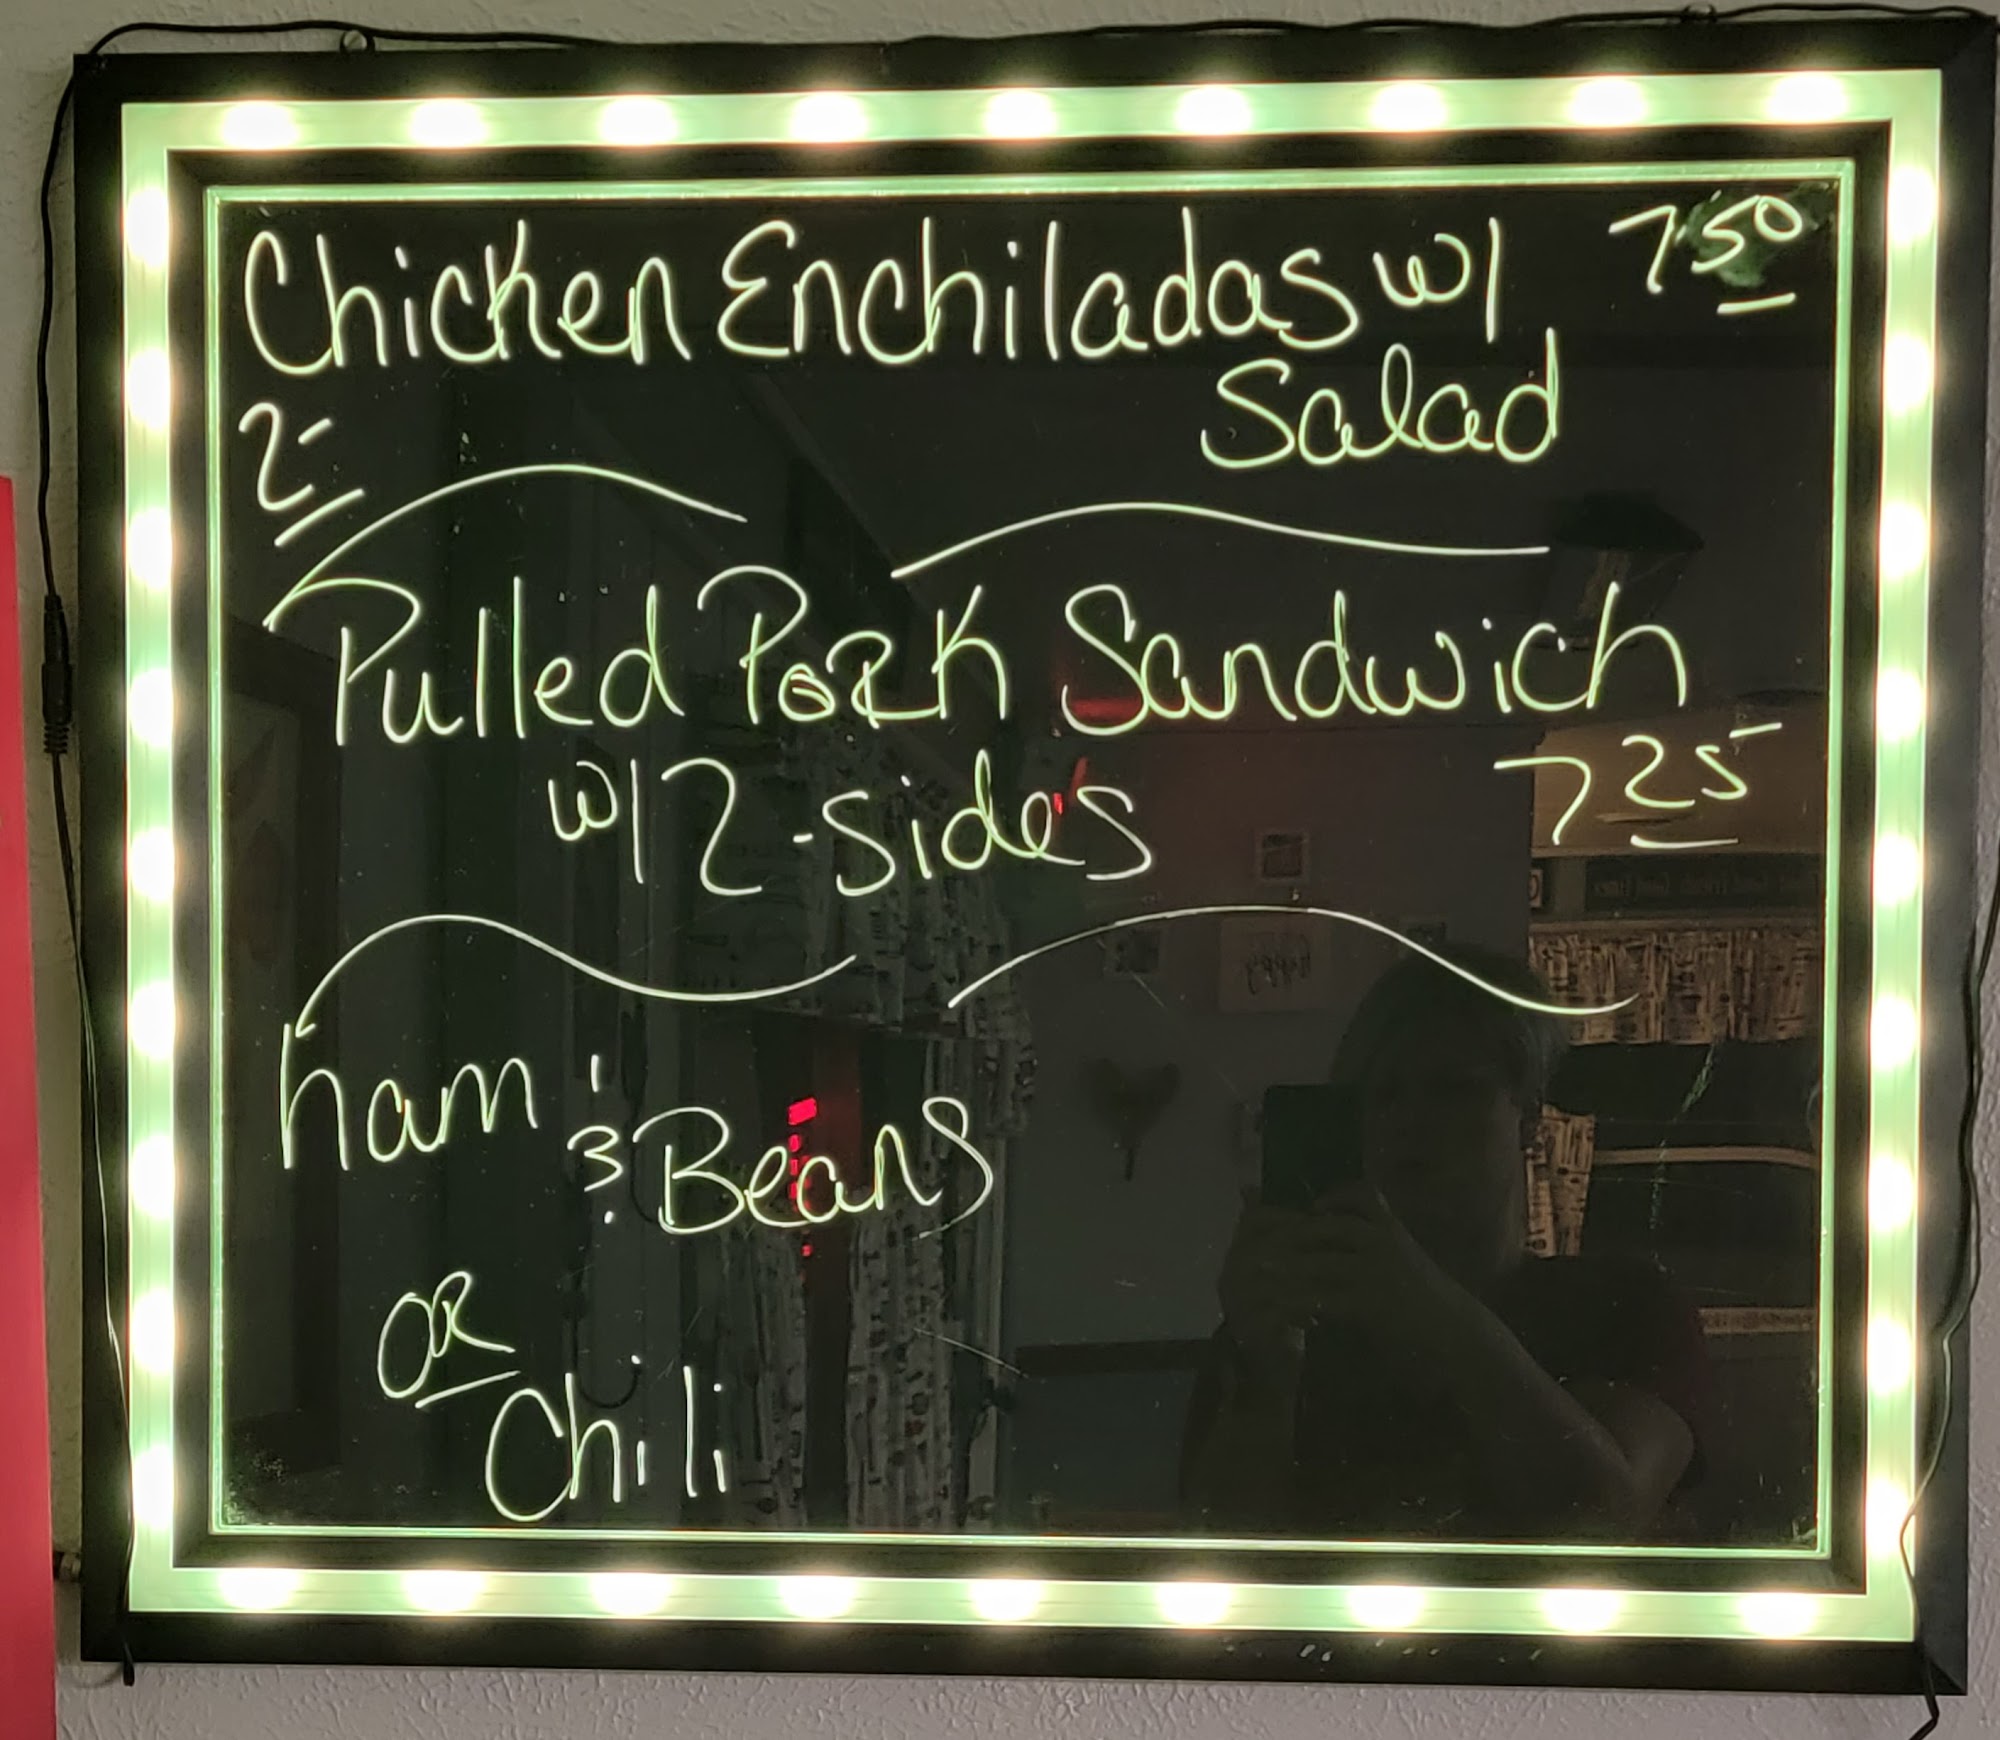 Chicken Enchiladas w/ 7.50
Salad
2-
Pulled Pork Sandwich
w/ 2-sides 7 25
ham & Beans
OR
Chili